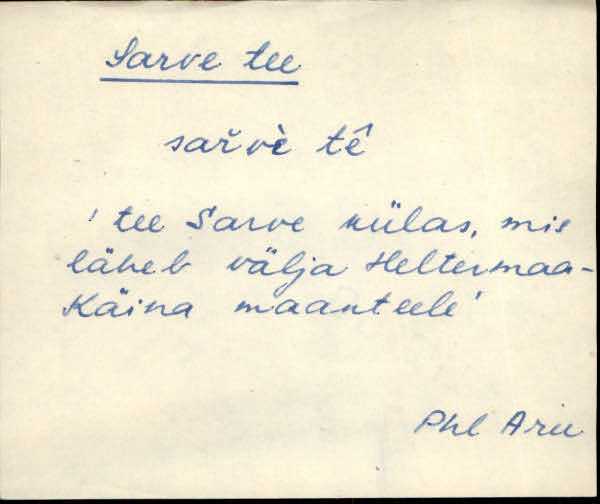 Sarve tee
sař̀vè tê
' tee Sarve külas, mis
läheb välja Heltermaa-
Käina maanteele'
Phl Aru